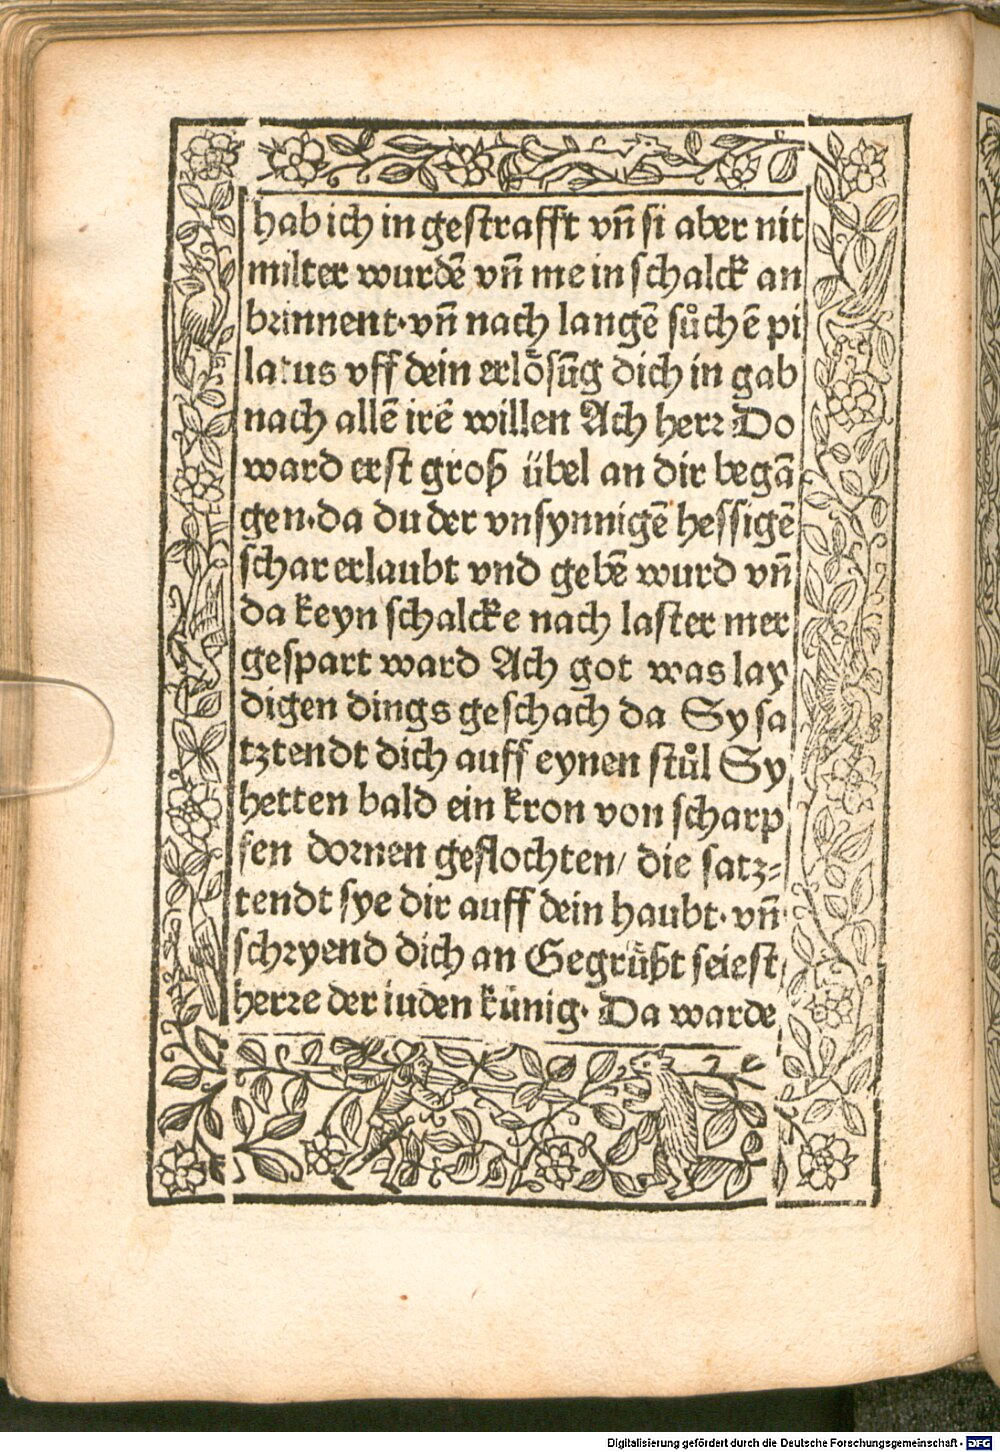 hab ich in gestrafft vn̄ si aber nit
milter wurdē vn̄ me in schalck an
brinnent·vn̄ nach langē sůchē pi
latus vff dein erlősūg dich in gab
nach allē irē willen Ach herr Do
ward erst groß übel an dir begā
gen·da du der vnsynnigē hessigē
schar erlaubt vnd gebē wurd vn̄
da keyn schalcke nach laster mer
gespart ward Ach got was lay
digen dings geschach da Sy sa
tztendt dich auff eynen stůl Sy
hetten bald ein kron von scharp
fen dornen geflochten/ die satz⸗
tendt sye dir auff dein haubt·vn̄
schryend dich an Gegrüßt seiest
herre der iuden künig· Da warde
Digitalisierung gefördert durch die Deutsche Forschungsgemeinschaft - DFG